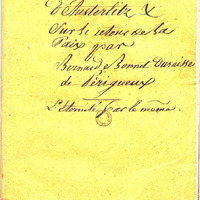 d'Austerlitz &
Sur le retour de la
Paix par
Bernard Bonnet Duraisse
de Périgueux
L'Eternité par le même.